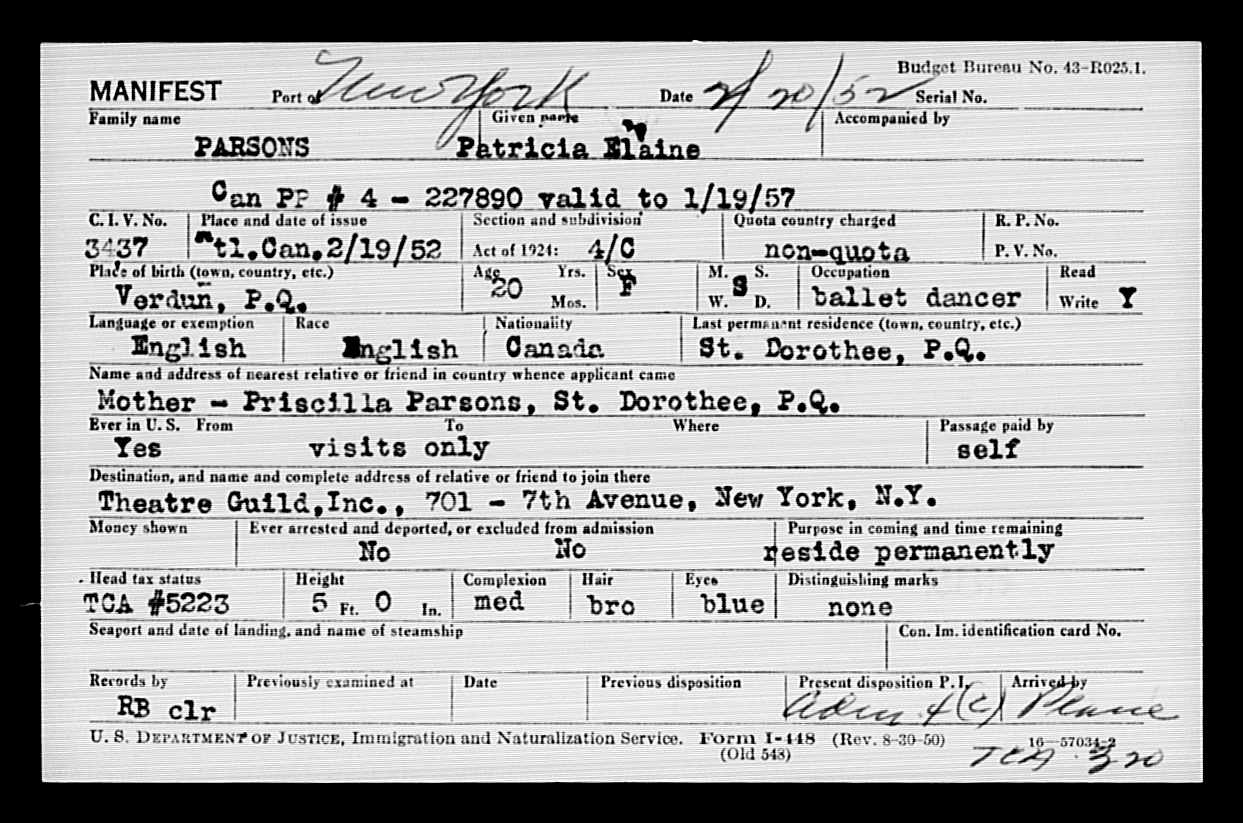 Budget Bureau No. 43-R025.1.
MANIFEST Port of New York Date 2/20/52 Serial No.
Family name Given name Accompanied by
PARSONS Patricia Elaine
Can PP # 4 - 227890 valid to 1/19/57
C. I. V. No. Place and date of issue Section and subdivision Quota country charged R. P. No.
3437 Mtl.Can.2/19/52 Act of 1924: 4/C non-quota P. V. No.
Place of birth (town, country, etc.) Age Yrs. Sex M. S. Occupation Read
Verdun, P.Q. 20 Mos. F S W. D. ballet dancer Write Y
Language or exemption Race Nationality Last permanent residence (town, country, etc.)
English English Canada St. Dorothee, P.Q.
Name and address of nearest relative or friend in country whence applicant came
Mother - Priscilla Parsons, St. Dorothee, P.Q.
Ever in U. S. From To Where Passage paid by
Yes visits only self
Destination, and name and complete address of relative or friend to join there
Theatre Guild,Inc., 701 - 7th Avenue, New York, N.Y.
Money shown Ever arrested and deported, or excluded from admission Purpose in coming and time remaining
No No reside permanently
Head tax status Height Complexion Hair Eyes Distinguishing marks
TCA #5223 5 Ft. 0 In. med bro blue none
Seaport and date of landing, and name of steamship Con. Im. identification card No.
Records by Previously examined at Date Previous disposition Present disposition P. I. Arrived by
RB clr Adm 4(c) Plane
U. S. DEPARTMENT OF JUSTICE, Immigration and Naturalization Service. Form I-448 (Rev. 8-30-50) 16—57034-2
(Old 548) TCA 320